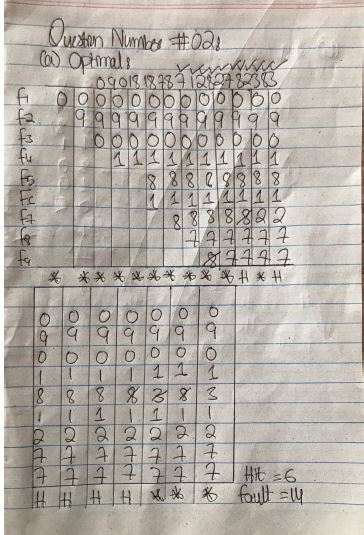 Question Number #02:
(a) Optimal:
0 9 0 1 8 1 8 7 8 7 1 2 8 2 7 8 2 3 8 3
f1 0 0 0 0 0 0 0 0 0 0 0 0 0
f2 9 9 9 9 9 9 9 9 9 9 9 9
f3 0 0 0 0 0 0 0 0 0 0 0
f4 1 1 1 1 1 1 1 1 1 1
f5 8 8 8 8 8 8 8 8
1 1 1 1 1 1 1 1
f7 8 8 8 8 8 2 2
f8 7 7 7 7 7 7
f9 8 7 7 7 7
* * * * * * * * * * H * H
0 0 0 0 0 0 0
9 9 9 9 9 9 9
0 0 0 0 0 0 0
1 1 1 1 1 1 1
8 8 8 8 3 8 3
1 1 1 1 1 1 1
2 2 2 2 2 2 2
7 7 7 7 7 7 7
7 7 7 7 7 7 7 Hit = 6
H H H H * * * fault = 14